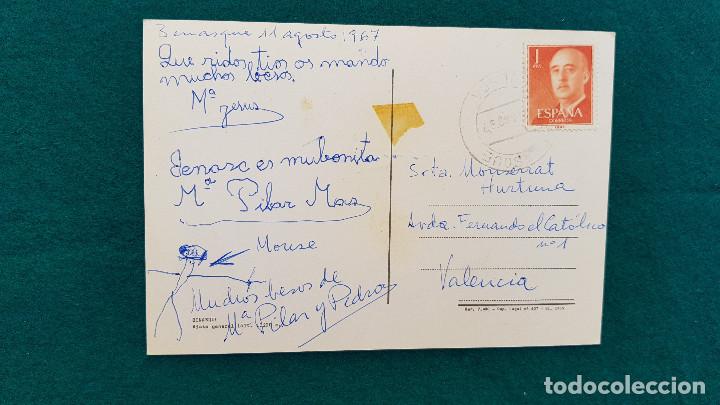 Benasque 11 agosto 1967
Queridos tios os mando
muchos besos.
Mª Jesus
Benasc es mu bonita
Mª Pilar Mas
Mouse
Muchos besos de
Mª Pilar y Pedro
BENASQUE
Vista general
1 PTA
ESPAÑA
CORREOS
Srta. Monserrat
Hurtuna
Avda. Fernando el Católico
nº 1
Valencia
todocoleccion